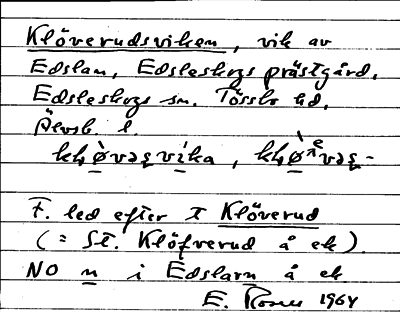 Klöverudsviken, vik av
Edslan, Edsleskogs prästgård,
Edsleskogs sn. Tössbo hd,
Älvsb. l.
F. led efter T Klöverud
(= St. Klöfverud å ek).
NO n i Edslarn å ek
E. 1964